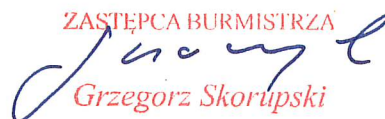 ZASTĘPCA BURMISTRZA
Grzegorz Skorupski